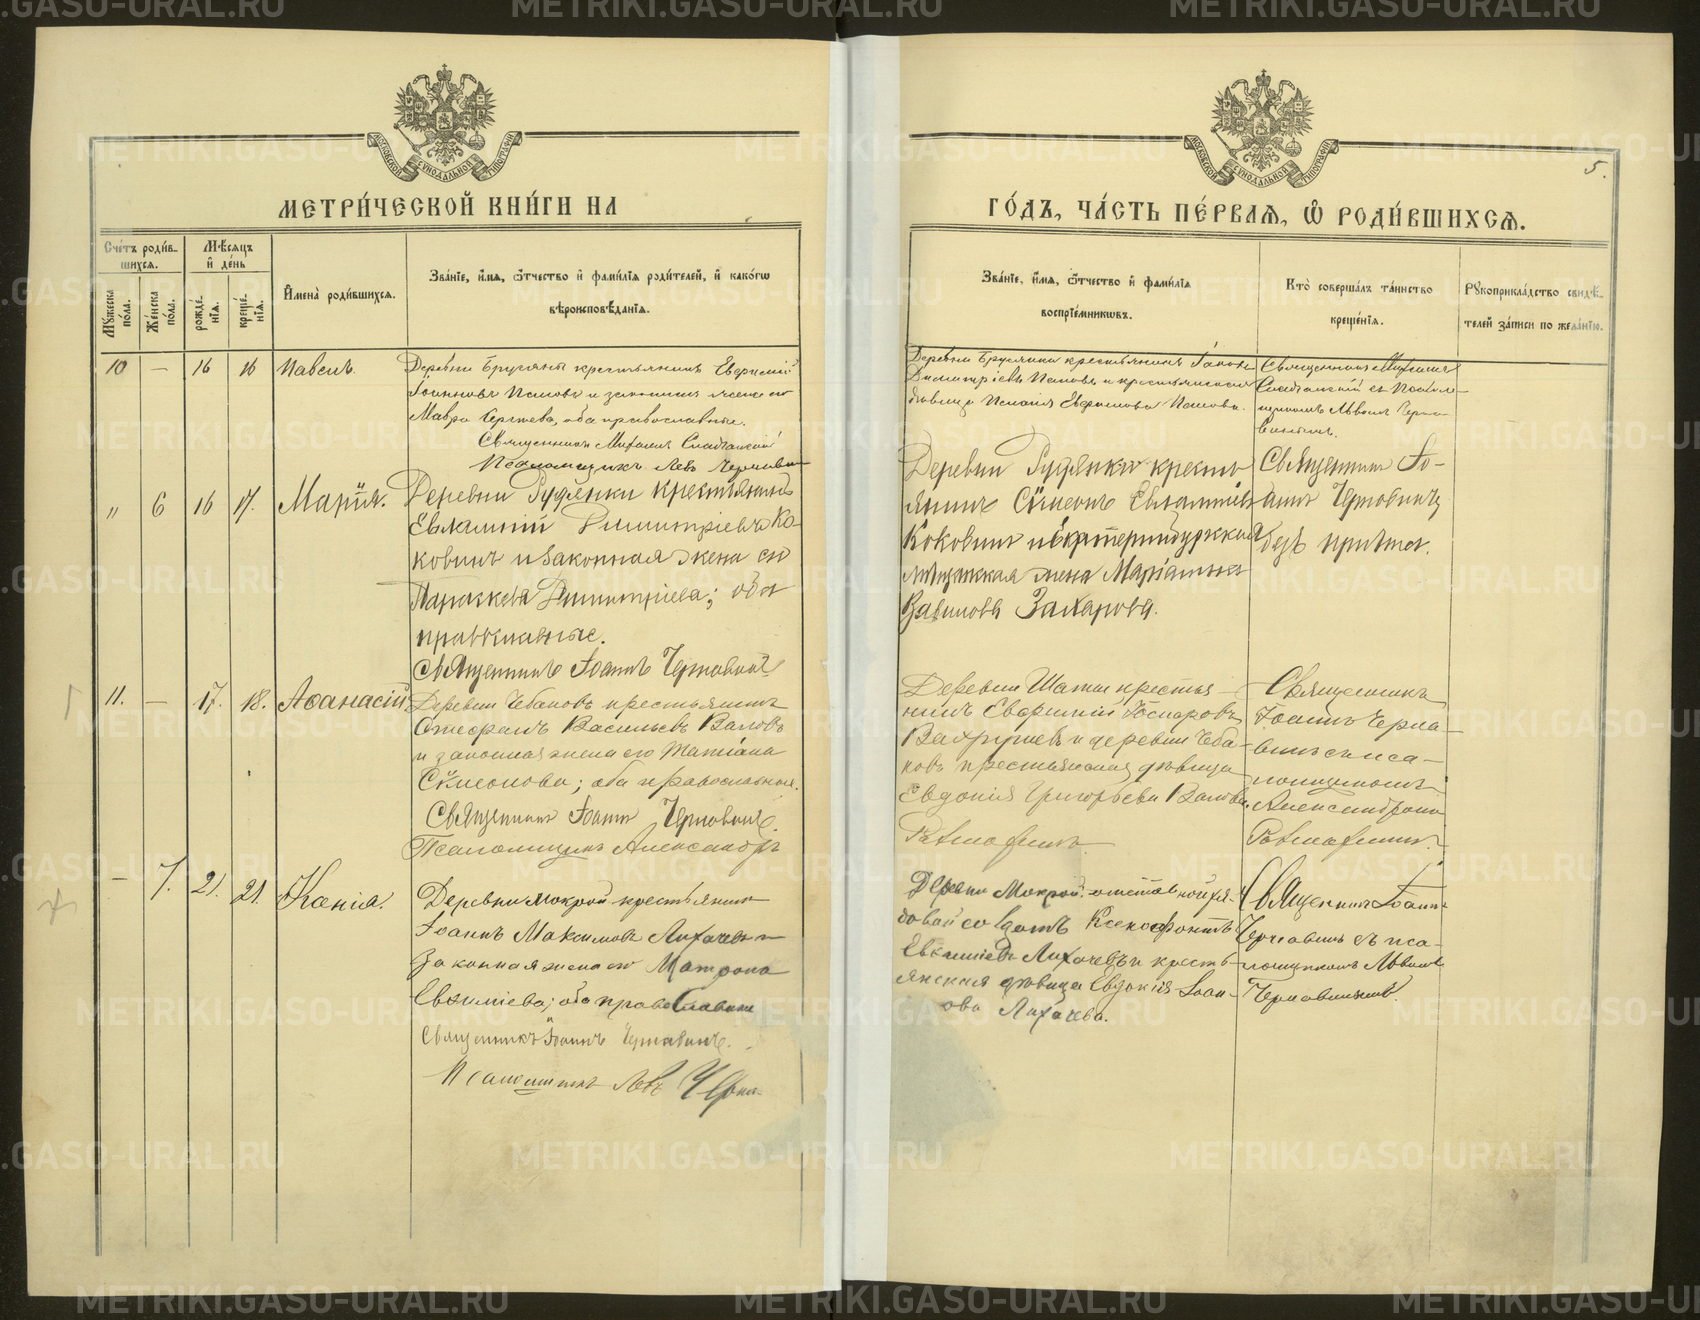 METRIKI.GASO-URAL.RU
МОСКОВСКОЙ СУНОДАЛЬНОЙ ТИПОГРАФІИ
МЕТРИ́ЧЕСКОЙ КНИ́ГИ НА
Сче́тъ роди́в-
шихся.
Мѣ́сяцъ
и҆ де́нь
И҆мена̀ роди́вшихся.
Зва́нїе, и҆́мя, ѻ҆́тчество и҆ фами́лїѧ роди́телей, и҆ како́гѡ
вѣроисповѣ́данїѧ.
Мꙋ́жеска по́ла.
Же́нска по́ла.
рожде́нїѧ.
креще́нїѧ.
10 — 16 16 Павелъ.
Деревни Брусяны крестьянинъ Евфимій
Іоанновъ Поповъ и законная жена его
Мавра Сергіева, оба православные.
Священникъ Михаилъ
Псаломщикъ Левъ
„ 6 16 17. Марія.
Деревни Рудянки крестьянинъ
Евлампій Димитріевъ Ко-
ковинъ и законная жена его
Параскева Димитріева; оба
православные.
Священникъ Іоаннъ Чернавинъ
11. — 17. 18. Аѳанасій
Деревни Чебаковъ крестьянинъ
Стефанъ Васильевъ Валовъ
и законная жена его Татіана
Сѵмеонова; оба православные.
Священникъ Іоаннъ Чернавинъ.
Псаломщикъ Александръ
— 7. 21. 21. Ксенія.
Деревни Мокрой крестьянинъ
Іоаннъ Максимовъ Лихачевъ и
Законная жена его Матрона
Евѳиміева; оба православные
Священникъ Іоаннъ Чернавинъ.
Псаломщикъ Левъ Черна-
МОСКОВСКОЙ СУНОДАЛЬНОЙ ТИПОГРАФІИ
5.
ГО́ДЪ, ЧА́СТЬ ПЕ́РВАѦ, Ѡ҆ РОДИ́ВШИХСѦ.
Зва́нїе, и҆́мя, ѻ҆́тчество и҆ фами́лїѧ
воспрїе́мникѡвъ.
Кто̀ соверша́лъ та́инство
креще́нїѧ.
Рꙋкоприкла́дство свидѣ́-
телей за́писи по жела́нїю.
Деревни Брусяны крестьянинъ Іаковъ
Димитріевъ Поповъ и крестьянская
дѣвица Евфимова Попова.
Священникъ Михаилъ
съ Псалом-
щикомъ Львомъ Черна-
винымъ.
Деревни Рудянки кресть-
янинъ Сѵмеонъ Евлампіевъ
Коковинъ и Екатеринбургская
мѣщанская жена Маріамна
Вавилова Захарова.
Священникъ Іо-
аннъ Чернавинъ
безъ причта.
Деревни Шатки крестья-
нинъ Евфимій
Вахрушевъ и деревни Чеба-
ковъ крестьянская дѣвица
Евдокія Григорьева Валова.
Священникъ
Іоаннъ Черна-
винъ съ пса-
ломщикомъ
Александромъ
Деревни Мокрой отставной ря-
довой солдатъ Ксенофонтъ
Лихачевъ и кресть-
янская дѣвица Евдокія Іоан-
ова Лихачева.
Священникъ Іоаннъ
Чернавинъ съ пса-
ломщикомъ Львомъ
Чернавинымъ.